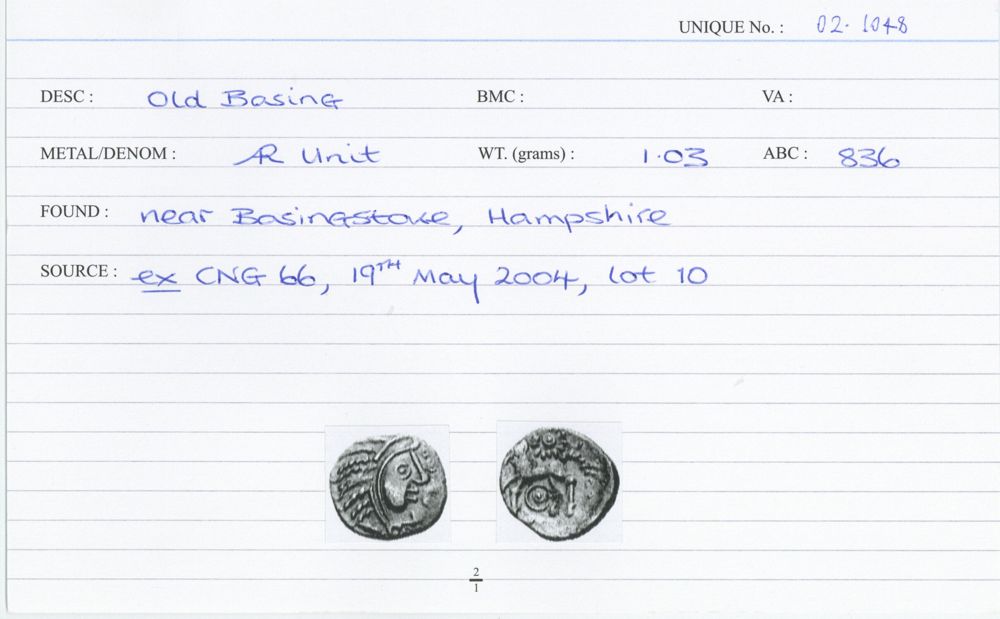 UNIQUE No. : 02. 1048
DESC : Old Basing BMC : VA :
METAL/DENOM : AR Unit WT. (grams) : 1.03 ABC : 836
FOUND : near Basingstoke, Hampshire
SOURCE : ex CNG 66, 19TH May 2004, lot 10
2
1